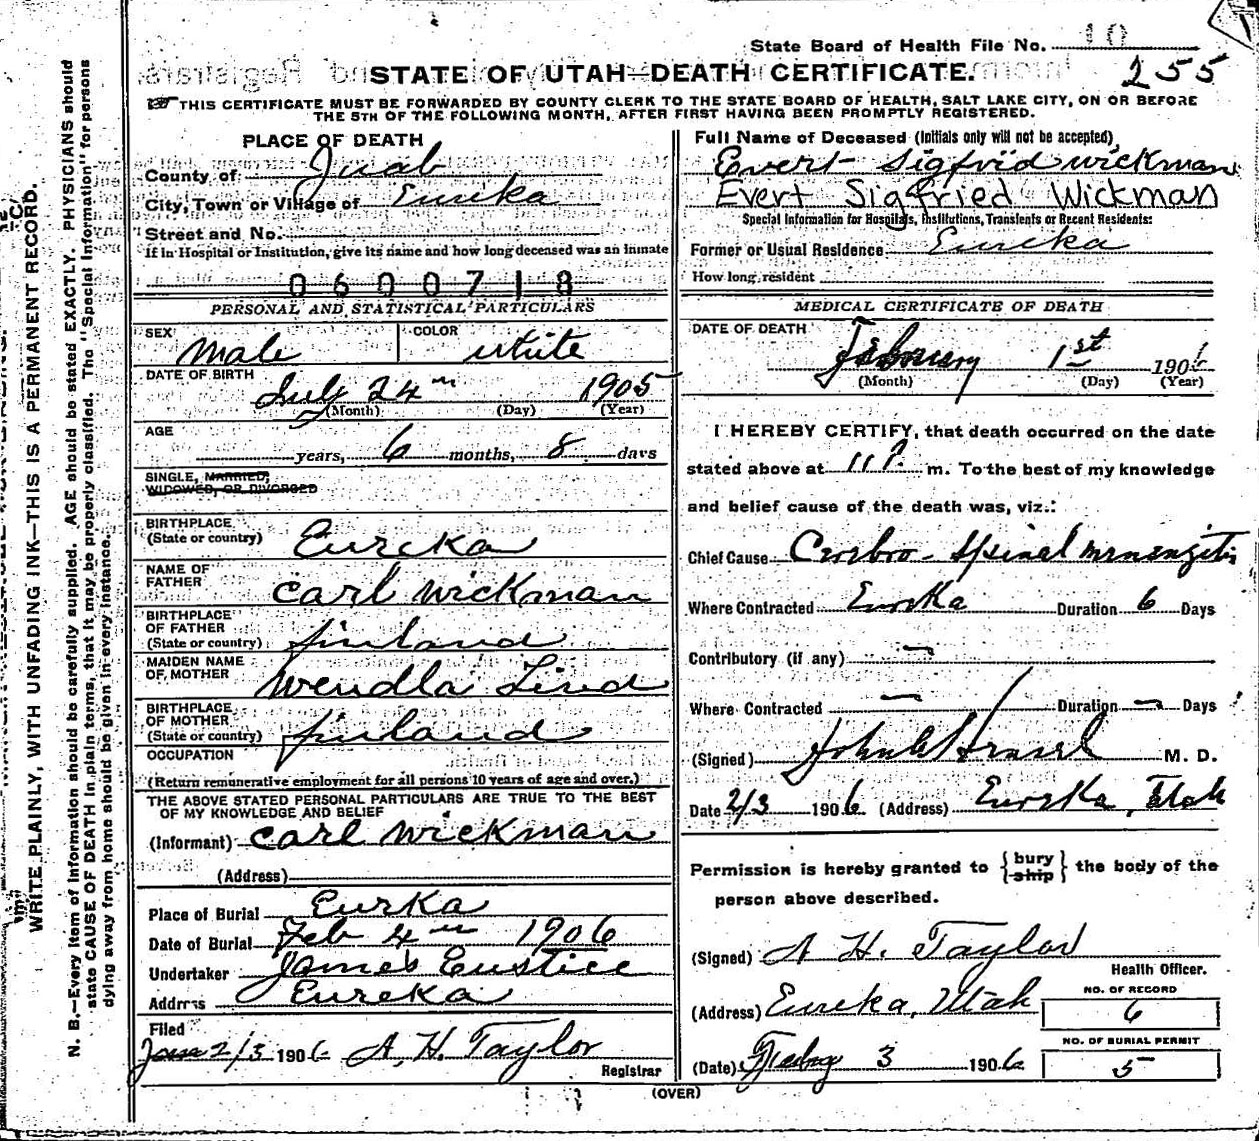 State Board of Health File No. 10
255
STATE OF UTAH—DEATH CERTIFICATE.
THIS CERTIFICATE MUST BE FORWARDED BY COUNTY CLERK TO THE STATE BOARD OF HEALTH, SALT LAKE CITY, ON OR BEFORE
THE 5TH OF THE FOLLOWING MONTH, AFTER FIRST HAVING BEEN PROMPTLY REGISTERED.
PLACE OF DEATH
County of Juab
City, Town or Village of Eureka
Street and No.
If in Hospital or Institution, give its name and how long deceased was an inmate
0600718
PERSONAL AND STATISTICAL PARTICULARS
SEX Male COLOR White
DATE OF BIRTH July 24th 1905
(Month) (Day) (Year)
AGE years, 6 months, 8 days
SINGLE, MARRIED,
WIDOWED, OR DIVORCED
BIRTHPLACE
(State or country) Eureka
NAME OF
FATHER Carl Wickman
BIRTHPLACE
OF FATHER
(State or country) Finland
MAIDEN NAME
OF MOTHER Wendla Lind
BIRTHPLACE
OF MOTHER
(State or country) Finland
OCCUPATION
(Return remunerative employment for all persons 10 years of age and over.)
THE ABOVE STATED PERSONAL PARTICULARS ARE TRUE TO THE BEST
OF MY KNOWLEDGE AND BELIEF
(Informant) Carl Wickman
(Address)
Place of Burial Eurka
Date of Burial Feb 4th 1906
Undertaker James Eustice
Address Eureka
Filed
Jan 2/3 1906 A. H. Taylor
Registrar
Full Name of Deceased (Initials only will not be accepted)
Evert Sigfrid Wickman
Evert Sigfried Wickman
Special Information for Hospitals, Institutions, Transients or Recent Residents:
Former or Usual Residence Eureka
How long resident
MEDICAL CERTIFICATE OF DEATH
DATE OF DEATH
February 1st 1906
(Month) (Day) (Year)
I HEREBY CERTIFY, that death occurred on the date
stated above at 11 P. m. To the best of my knowledge
and belief cause of the death was, viz.:
Chief Cause Cerebro-Spinal Meningitis
Where Contracted Eureka Duration 6 Days
Contributory (if any) —
Where Contracted — Duration — Days
(Signed) John M. D.
Date 2/3 1906 (Address) Eureka, Utah
Permission is hereby granted to {bury ship} the body of the
person above described.
(Signed) A H. Taylor
Health Officer.
(Address) Eureka, Utah
NO. OF RECORD
6
(Date) Feby 3 1906
NO. OF BURIAL PERMIT
5
(OVER)
WRITE PLAINLY, WITH UNFADING INK—THIS IS A PERMANENT RECORD.
N. B.—Every item of information should be carefully supplied. AGE should be stated EXACTLY. PHYSICIANS should
state CAUSE OF DEATH in plain terms, that it may be properly classified. The "Special Information" for persons
dying away from home should be given in every instance.